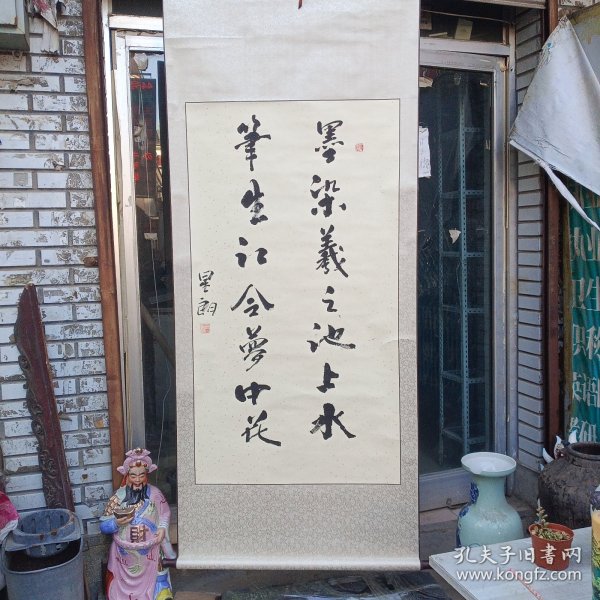 墨染羲之池上水
筆生江令夢中花
星朗
孔夫子旧书网
www.kongfz.com